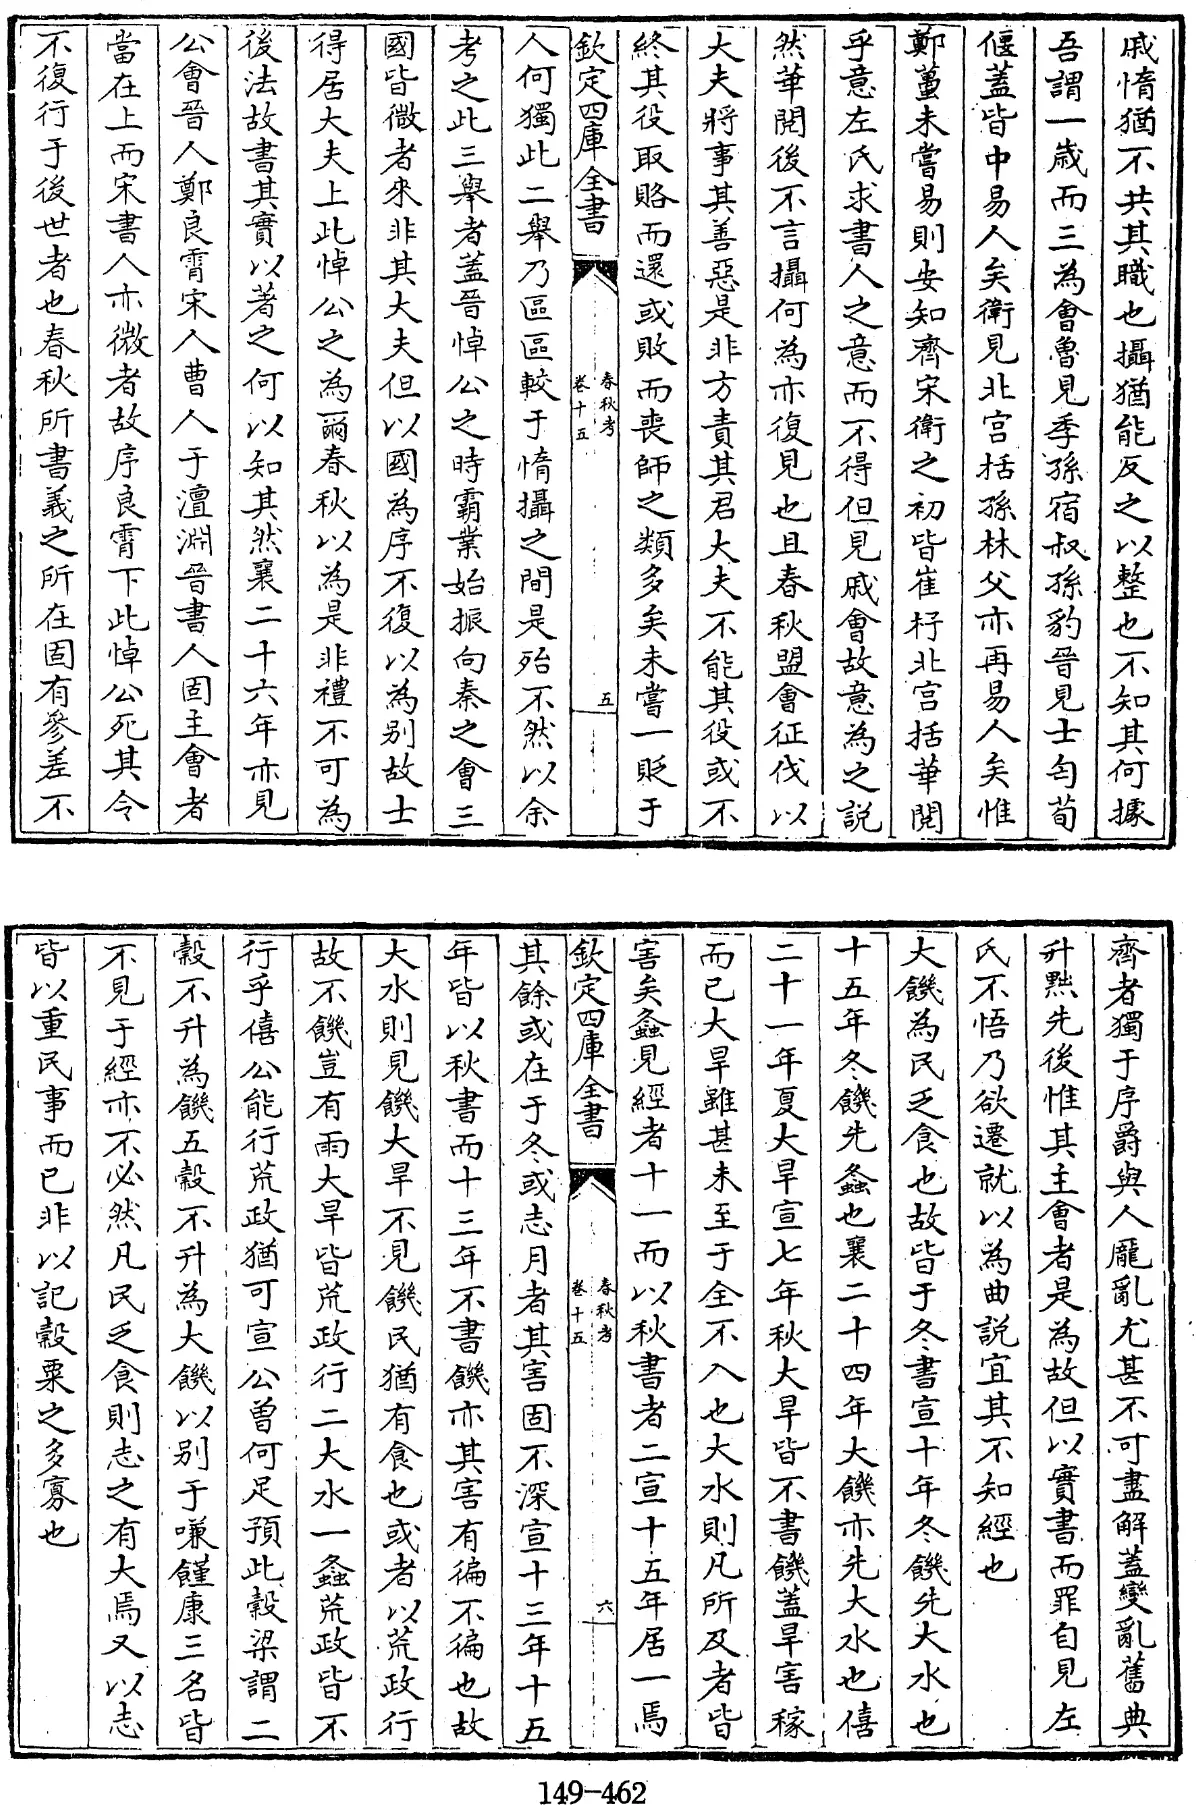 戚惰猶不共其職也攝猶能反之以整也不知其何據
吾謂一歲而三為會魯見季孫宿叔孫豹晉見士匄荀
偃蓋皆中易人矣衛見北宮括孫林父亦再易人矣惟
鄭蠆未嘗易則安知齊宋衛之初皆崔杼北宮括華閱
乎意左氏求書人之意而不得但見戚會故意為之說
然華閱後不言攝何為亦復見也且春秋盟會征伐以
大夫將事其善惡是非方責其君大夫不能其役或不
終其役取賂而還或敗而喪師之類多矣未嘗一貶于
欽定四庫全書
春秋考
卷十五
五
人何獨此二舉乃區區較于惰攝之間是殆不然以余
考之此三舉者蓋晉悼公之時霸業始振向秦之會三
國皆微者來非其大夫但以國為序不復以為别故士
得居大夫上此悼公之為爾春秋以為是非禮不可為
後法故書其實以著之何以知其然襄二十六年亦見
公會晉人鄭良霄宋人曹人于澶淵晉書人固主會者
當在上而宋書人亦微者故序良霄下此悼公死其令
不復行于後世者也春秋所書義之所在固有參差不
齊者獨于序爵與人龎亂尤甚不可盡解蓋變亂舊典
升黜先後惟其主會者是為故但以實書而罪自見左
氏不悟乃欲遷就以為曲說宜其不知經也
大饑為民乏食也故皆于冬書宣十年冬饑先大水也
十五年冬饑先螽也襄二十四年大饑亦先大水也僖
二十一年夏大旱宣七年秋大旱皆不書饑蓋旱害稼
而已大旱雖甚未至于全不入也大水則凡所及者皆
害矣螽見經者十一而以秋書者二宣十五年居一焉
欽定四庫全書
春秋考
卷十五
六
其餘或在于冬或志月者其害固不深宣十三年十五
年皆以秋書而十三年不書饑亦其害有徧不徧也故
大水則見饑大旱不見饑民猶有食也或者以荒政行
故不饑豈有雨大旱皆荒政行二大水一螽荒政皆不
行乎僖公能行荒政猶可宣公曾何足預此穀梁謂二
穀不升為饑五穀不升為大饑以别于嗛饉康三名皆
不見于經亦不必然凡民乏食則志之有大焉又以志
皆以重民事而已非以記穀粟之多寡也
149-462